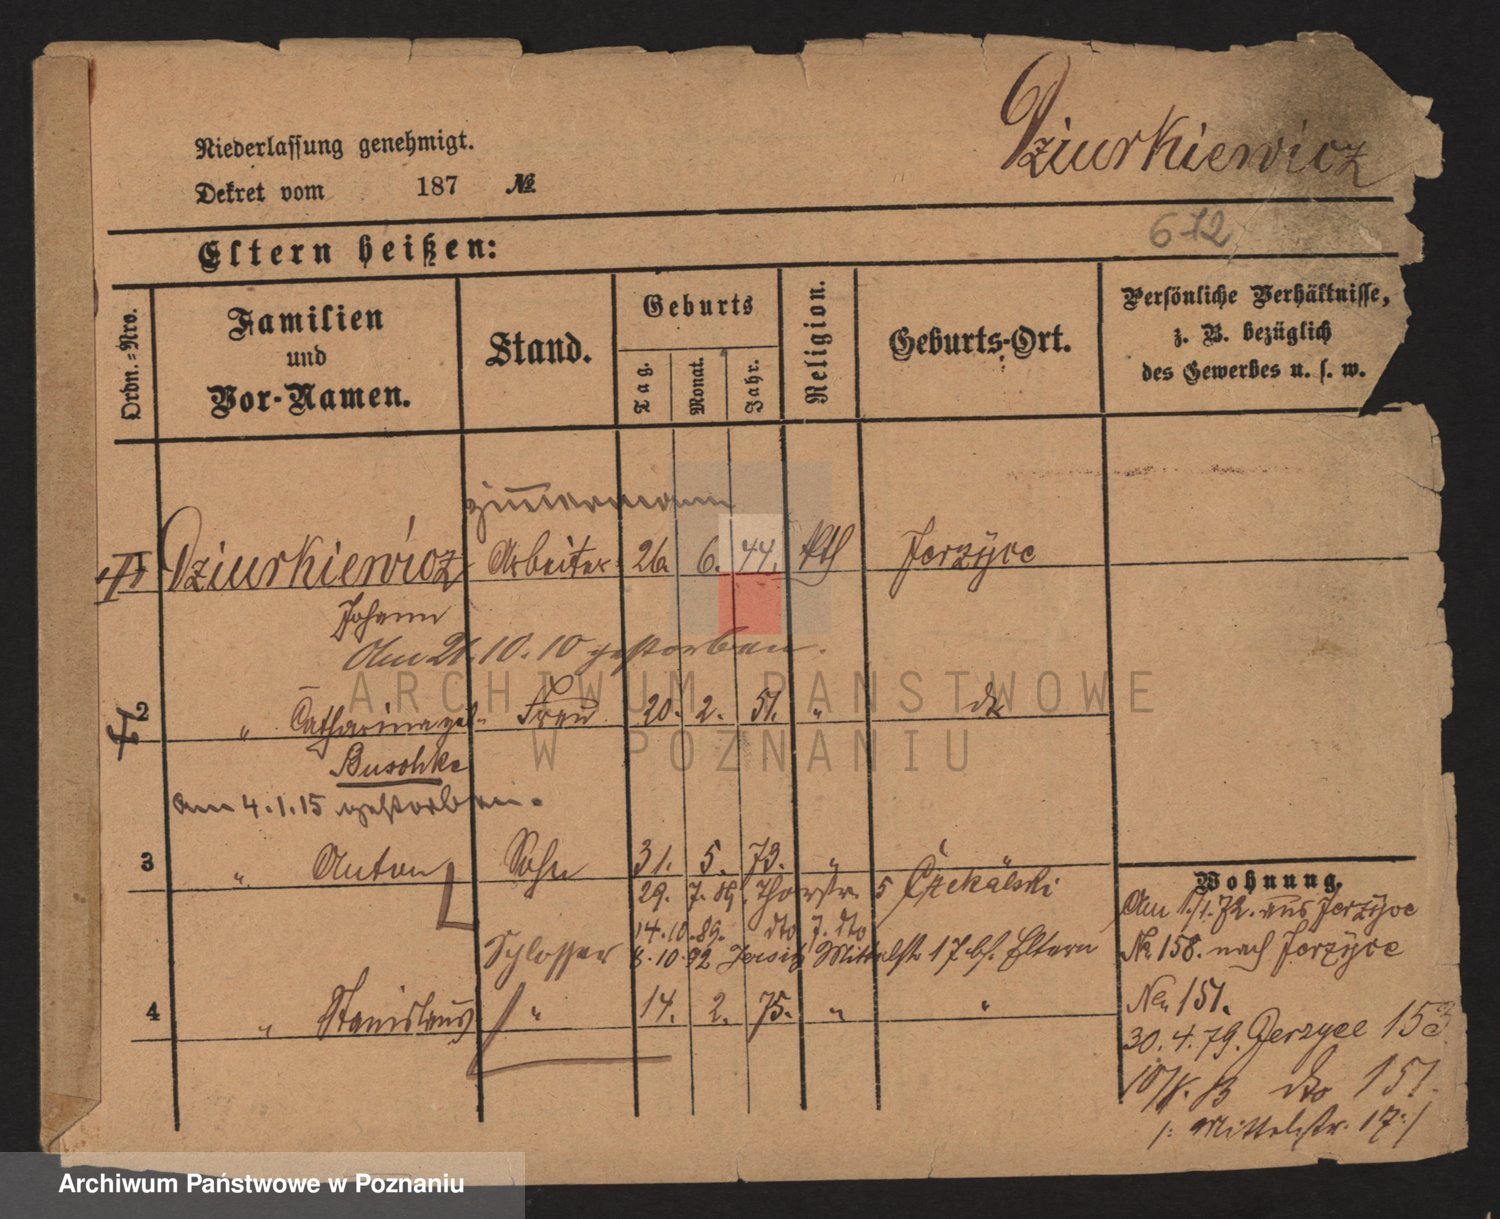 Dziurkiewicz
Niederlassung genehmigt.
Dekret vom 187 No.
672
Eltern heißen:
Ordn.-Nro.
Familien
und
Vor-Namen.
Stand.
Geburts
Tag.
Monat.
Jahr.
Religion.
Geburts-Ort.
Persönliche Verhältnisse,
z. B. bezüglich
des Gewerbes u. s. w.
Zimmermann
Dziurkiewicz Arbeiter 26. 6. 44. kth Jerzyce
Johann
Am 21.10.10 gestorben.
2 " Catharina geb. Frau 20. 2. 51. " do
Buschke
am 4.1.15 gestorben.
3 " Anton Sohn 31. 5. 73. " "
29. 7. 89. Thorstr. 5 Czekalski
14.10.89. dto 7. dto
Schlosser 8.10.92 Jersitz Mittelstr 17 bs. Eltern
4 " Stanislaus " 14. 2. 75. " "
Wohnung.
Am 1./1.72. aus Jerzyce
No 158. nach Jerzyce
No 151.
30.4.79. Jerzyce 153
dto 151.
/: Mittelstr. 17 :/
ARCHIWUM PAŃSTWOWE
W POZNANIU
Archiwum Państwowe w Poznaniu